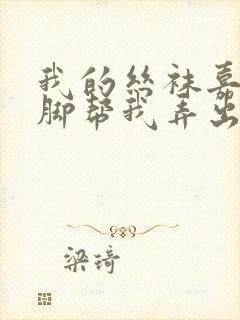 我的丝袜嘉
脚帮我弄出
梁琦